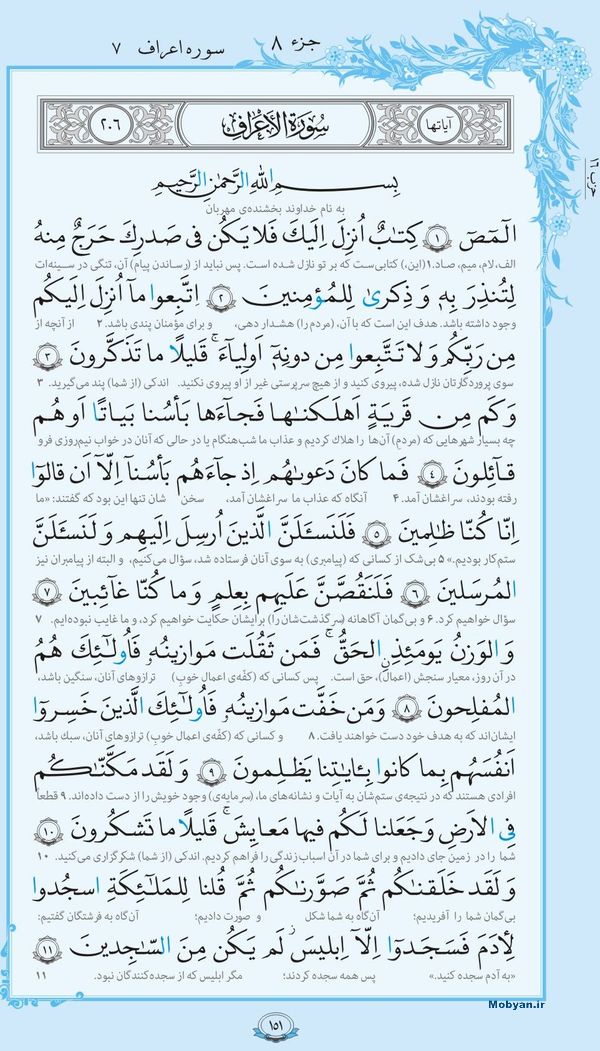 جزء ۸
سوره اعراف ۷
حزب ۱۶
آیاتها
سُورَةُ الأَعرَافِ
۲۰۶
بِسمِ اللهِ الرَّحمٰنِ الرَّحیمِ
به نام خداوند بخشنده‌ی مهربان
الٓمٓصٓ ۱ کِتٰبٌ اُنزِلَ اِلَیكَ فَلا یَکُن فی صَدرِكَ حَرَجٌ مِنهُ
الف، لام، میم، صاد.۱ (این،) کتابی‌ست که بر تو نازل شده است. پس نباید از (رساندن پیام) آن، تنگی در سینه‌ات
لِتُنذِرَ بِهٖ وَ ذِکریٰ لِلمُؤمِنینَ ۲ اِتَّبِعوا مآ اُنزِلَ اِلَیکُم
وجود داشته باشد. هدف این است که با آن، (مردم را) هشدار دهی، و برای مؤمنان پندی باشد. ۲ از آنچه از
مِن رَبِّکُم وَلا تَتَّبِعوا مِن دونِهٖٓ اَولِیآءَ ۚ قَلیلًا ما تَذَکَّرونَ ۳
سوی پروردگارتان نازل شده، پیروی کنید و از هیچ سرپرستی غیر از او پیروی نکنید. اندکی (از شما) پند می‌گیرید. ۳
وَکَم مِن قَریَةٍ اَهلَکنٰها فَجآءَها بَأسُنا بَیاتًا اَو هُم
چه بسیار شهرهایی که (مردم) آن‌ها را هلاك کردیم و عذاب ما شب‌هنگام یا در حالی که آنان در خواب نیم‌روزی فرو
قآئِلونَ ۴ فَما کانَ دَعوىٰهُم اِذ جآءَهُم بَأسُنآ اِلّآ اَن قالوٓا
رفته بودند، سراغشان آمد. ۴ آنگاه که عذاب ما سراغشان آمد، سخن شان تنها این بود که گفتند: «ما
اِنّا کُنّا ظٰلِمینَ ۵ فَلَنَسـَٔلَنَّ الَّذینَ اُرسِلَ اِلَیهِم وَ لَنَسـَٔلَنَّ
ستم‌کار بودیم.» ۵ بی‌شک از کسانی که (پیامبری) به سوی آنان فرستاده شد، سؤال می‌کنیم، و البته از پیامبران نیز
المُرسَلینَ ۶ فَلَنَقُصَّنَّ عَلَیهِم بِعِلمٍ وَ ما کُنّا غآئِبینَ ۷
سؤال خواهیم کرد. ۶ و بی‌گمان آگاهانه (سرگذشت‌شان را) برایشان حکایت خواهیم کرد، و ما غایب نبوده‌ایم. ۷
وَ الوَزنُ یَومَئِذٍ الحَقُّ ۚ فَمَن ثَقُلَت مَوازینُهٗ فَاُولٰٓئِكَ هُمُ
در آن روز، معیار سنجش (اعمال)، حق است. پس کسانی که (کفّه‌ی اعمال خوبِ) ترازوهای آنان، سنگین باشد،
المُفلِحونَ ۸ وَمَن خَفَّت مَوازینُهٗ فَاُولٰٓئِكَ الَّذینَ خَسِروٓا
ایشان‌اند که به هدف خود دست خواهند یافت. ۸ و کسانی که (کفّه‌ی اعمال خوبِ) ترازوهای آنان، سبك باشد،
اَنفُسَهُم بِما کانوا بِـٔایٰتِنا یَظلِمونَ ۹ وَ لَقَد مَکَّنّٰکُم
افرادی هستند که در نتیجه‌ی ستم‌شان به آیات و نشانه‌های ما، (سرمایه‌ی) وجود خویش را از دست داده‌اند. ۹ قطعاً
فِی الاَرضِ وَ جَعَلنا لَکُم فیها مَعایِشَ ۗ قَلیلًا ما تَشکُرونَ ۱۰
شما را در زمین جای دادیم و برای شما در آن اسباب زندگی را فراهم کردیم. اندکی (از شما) شکرگزاری می‌کنید. ۱۰
وَ لَقَد خَلَقنٰکُم ثُمَّ صَوَّرنٰکُم ثُمَّ قُلنا لِلمَلٰٓئِکَةِ اسجُدوا
بی‌گمان شما را آفریدیم؛ آن‌گاه به شما شکل و صورت دادیم؛ آن‌گاه به فرشتگان گفتیم:
لِأدَمَ فَسَجَدوٓا اِلّآ اِبلیسَ لَم یَکُن مِنَ السّٰجِدینَ ۱۱
«به آدم سجده کنید.» پس همه سجده کردند؛ مگر ابلیس که از سجده‌کنندگان نبود. ۱۱
Mobyan.ir
۱۵۱